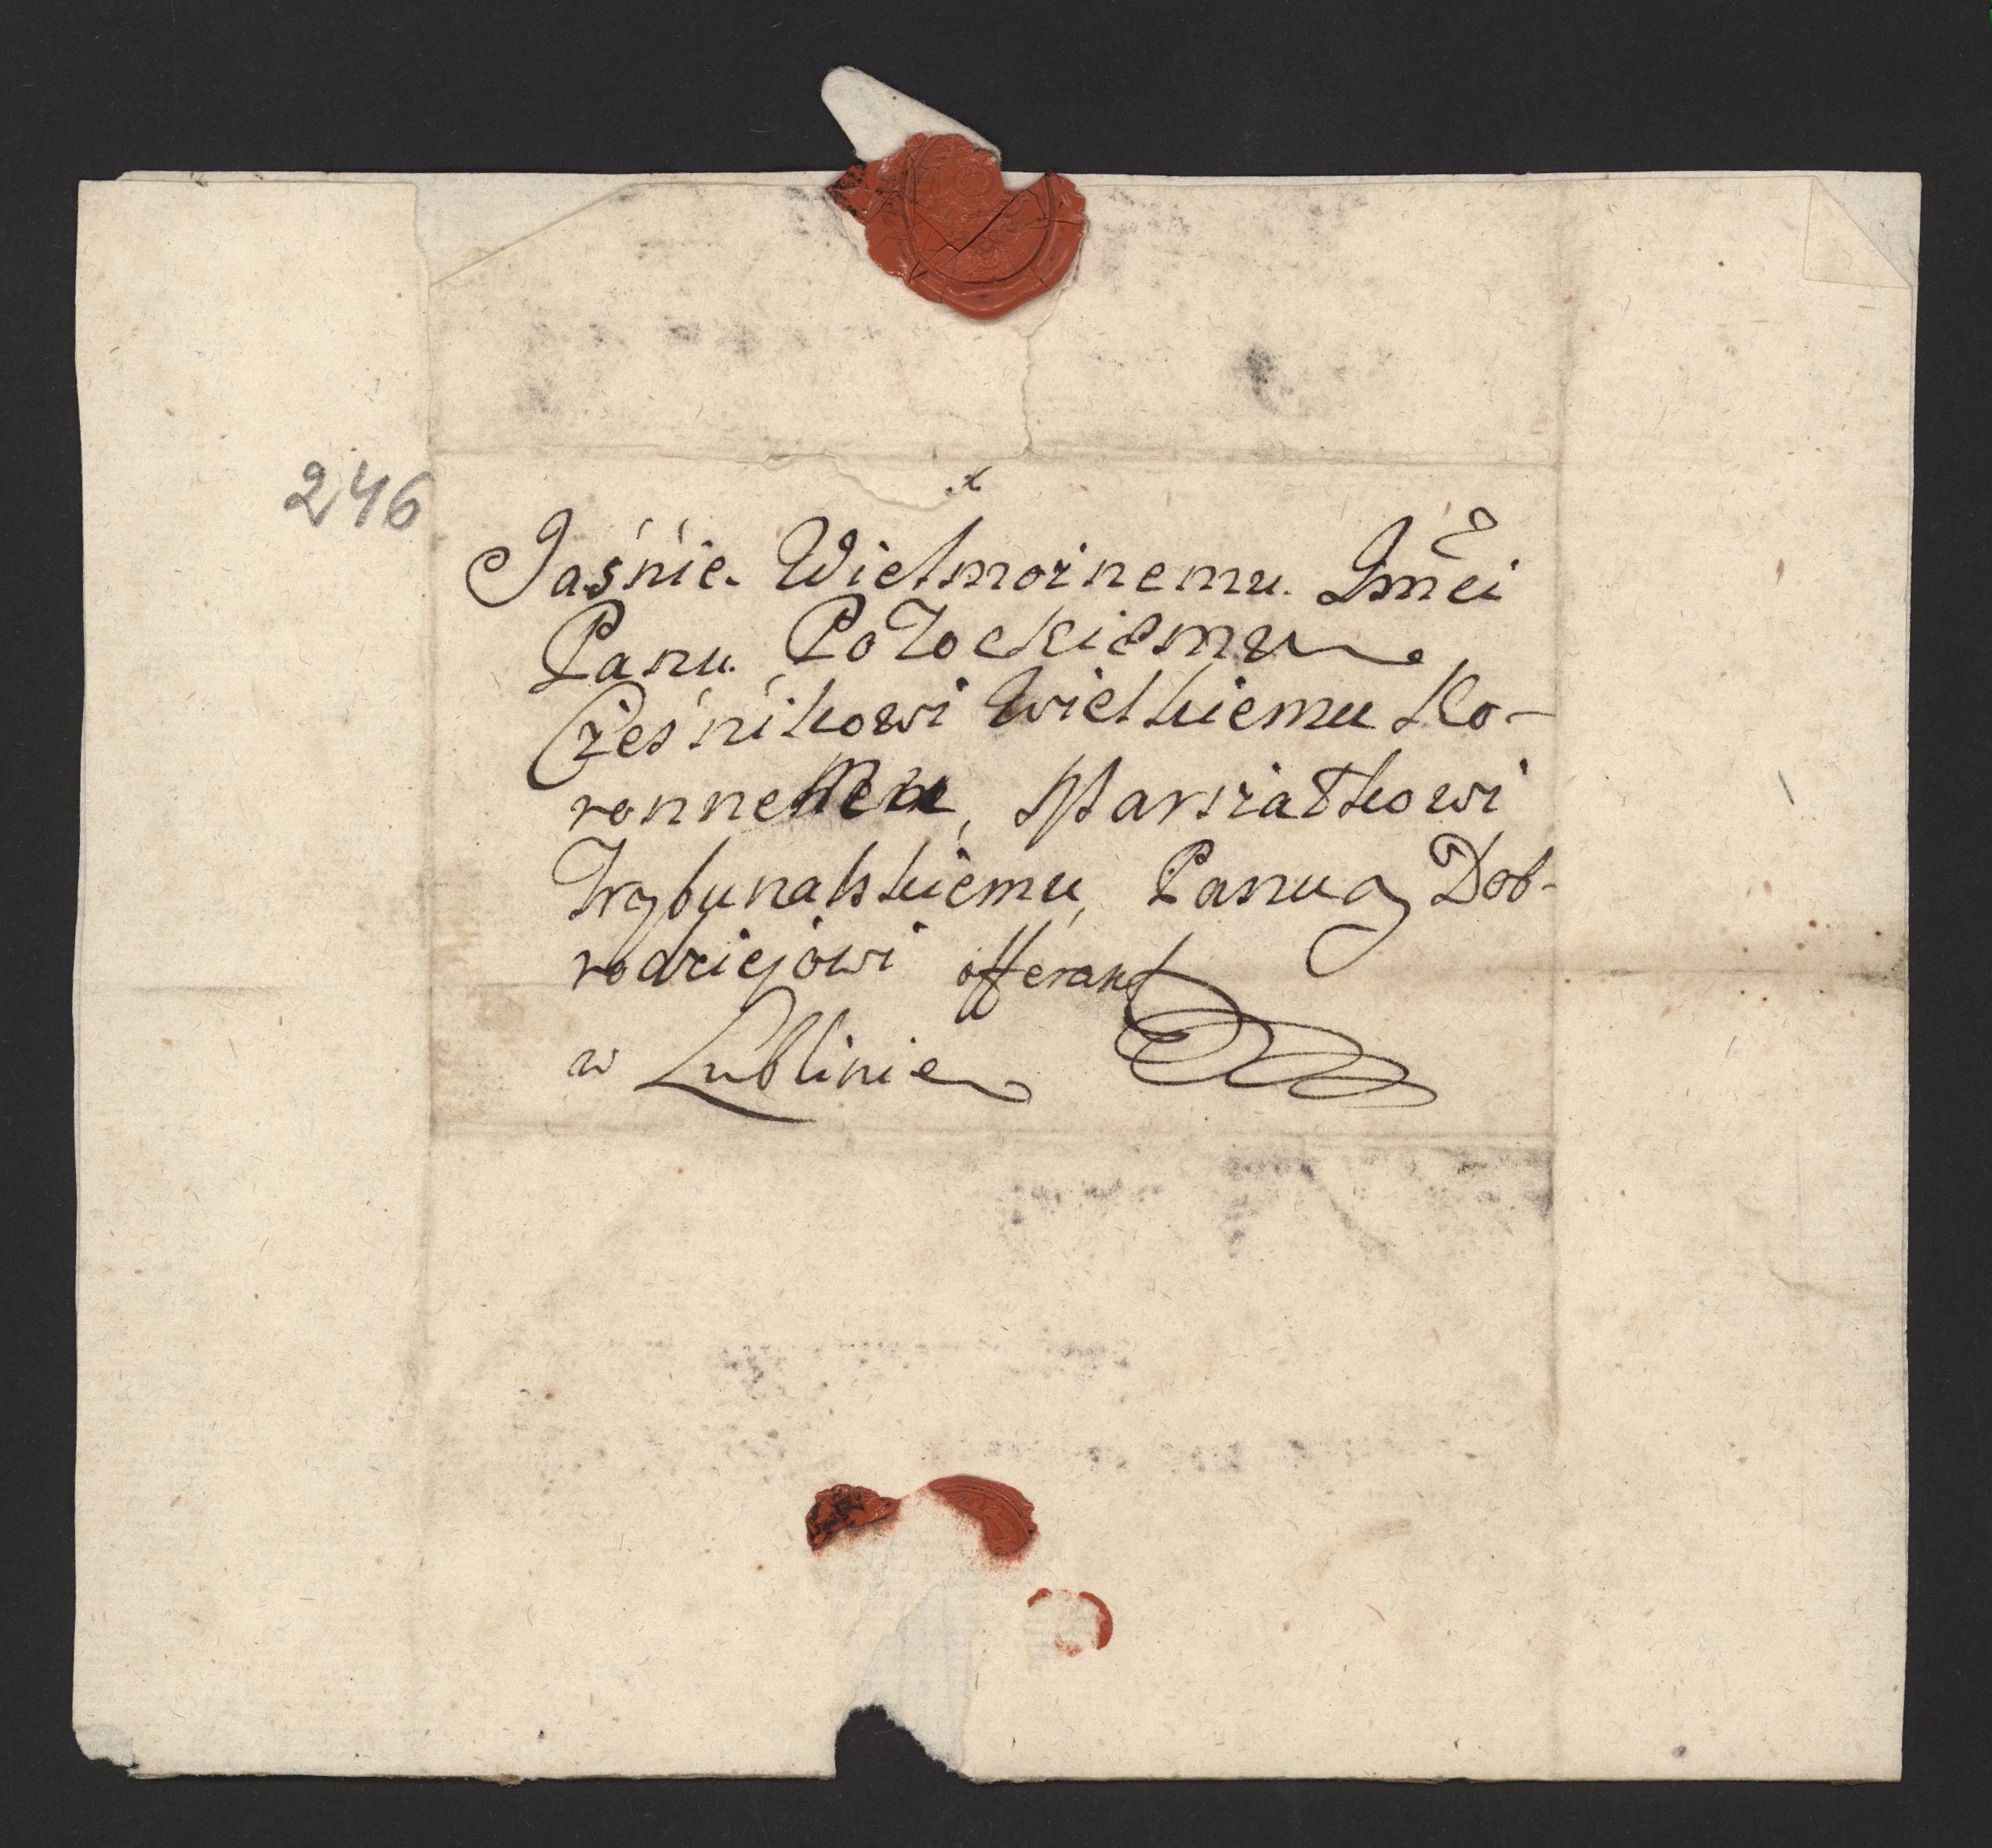 246
Jaśnie Wielmożnemu Jmći
Panu Potockiemu
Cześnikowi Wielkiemu Ko-
ronnemu, Marszałkowi
Trybunalskiemu, Panu y Dob-
rodziejowi offerant
w Lublinie